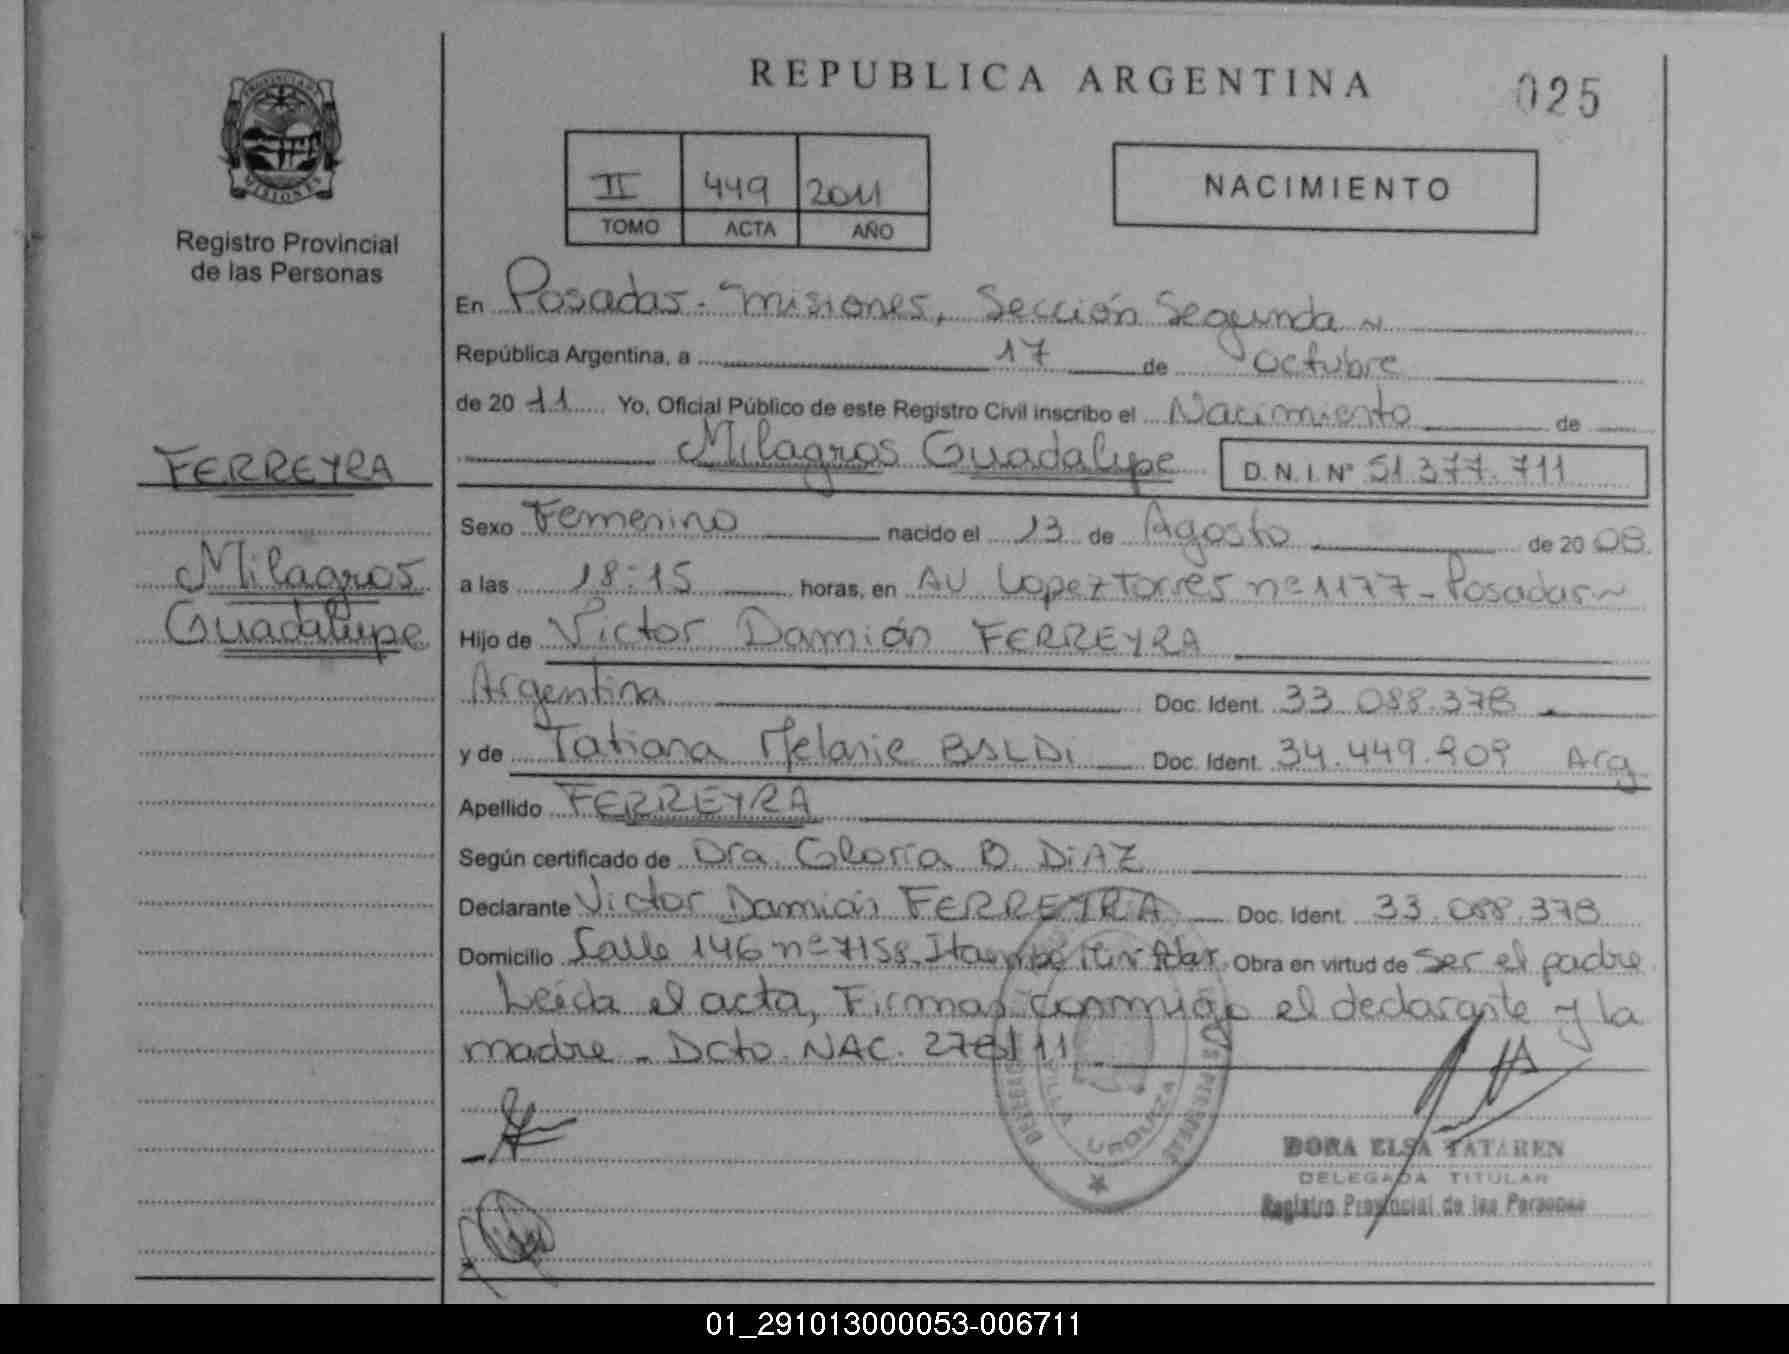 REPUBLICA ARGENTINA
025
PROVINCIA DE
MISIONES
Registro Provincial
de las Personas
II 449 2011
TOMO ACTA AÑO
NACIMIENTO
En Posadas - Misiones, Sección Segunda ~
República Argentina, a 17 de Octubre
de 20 11 Yo, Oficial Público de este Registro Civil inscribo el Nacimiento de
Milagros Guadalupe D.N.I. Nº 51.377.711
FERREYRA
Milagros
Guadalupe
Sexo Femenino nacido el 13 de Agosto de 20 08.
a las 18:15 horas, en AV Lopez Torres nº 1177 - Posadas ~
Hijo de Victor Damián FERREYRA
Argentina Doc. Ident. 33.088.378
y de Tatiana Melanie Doc. Ident. 34.449.909 Arg
Apellido FERREYRA
Según certificado de Dra. Gloria B. DiAZ
Declarante Victor Damián FERREYRA Doc. Ident. 33.088.378
Domicilio Calle 146 nº 7158 Itaembé Obra en virtud de Ser el padre
Leída el acta, Firman conmigo el declarante y la
madre - Dcto. NAC. 278/11
VILLA URQUIZA
DORA ELSA TATAREN
DELEGADA TITULAR
Registro Provincial de las Personas
01_291013000053-006711